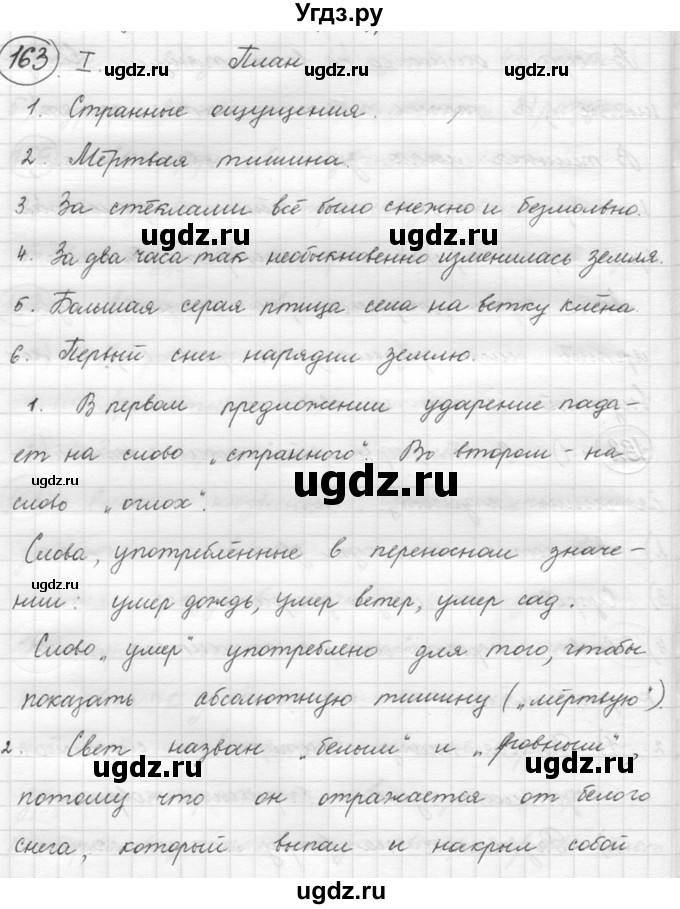 Угдз.ру
163 I План
1. Странные ощущения.
2. Мёртвая тишина.
3 За стёклами всё было снежно и безмолвно.
4. За два часа так необыкновенно изменилась земля.
5. Большая серая птица села на ветку клёна.
6. Первый снег нарядил землю.
1. В первом предложении ударение пада-
ет на слово „странного". Во втором - на
слово „оглох".
Слова, употреблённые в переносном значе-
нии: умер дождь, умер ветер, умер сад.
Слово „умер" употреблено для того, чтобы
показать абсолютную тишину („мёртвую").
2. Свет назван „белым" и „ровным",
потому что он отражается от белого
снега, который выпал и накрыл собой
ugdz.ru
ugdz.ru
ugdz.ru
ugdz.ru
ugdz.ru
ugdz.ru
ugdz.ru
ugdz.ru
ugdz.ru
ugdz.ru
ugdz.ru
ugdz.ru
ugdz.ru
ugdz.ru